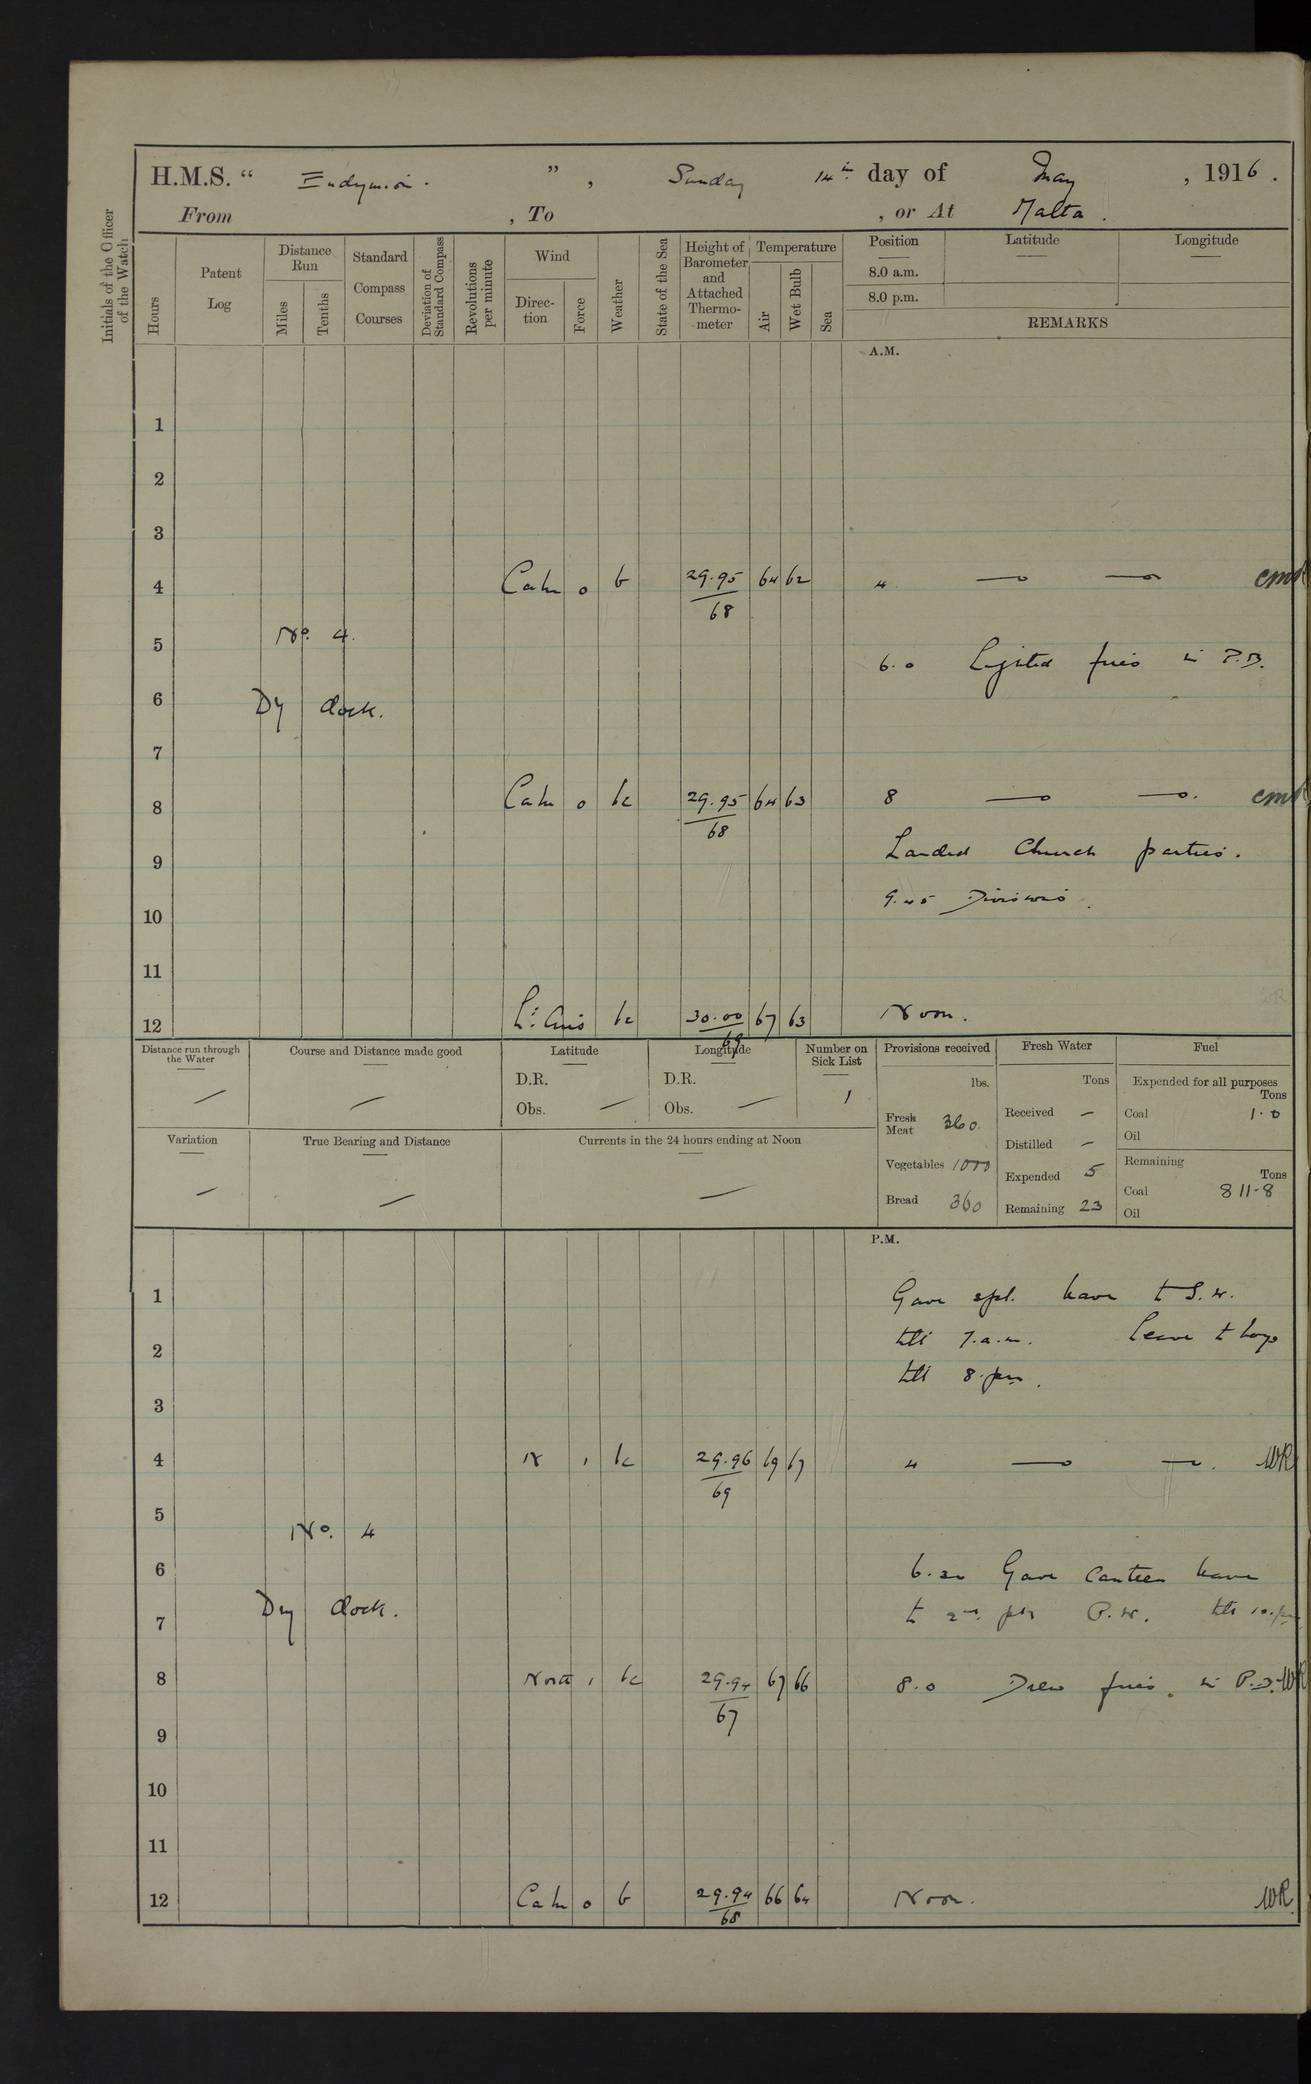 H.M.S. “ Endymion . ” , Sunday 14th day of May , 1916 .
From , To , or At Malta .
Initials of the Officer of the Watch
Hours
Patent Log
Distance Run
Miles
Tenths
Standard Compass Courses
Deviation of Standard Compass
Revolutions per minute
Wind
Direc-tion
Force
Weather
State of the Sea
Height of Barometer and Attached Thermo-meter
Temperature
Air
Wet Bulb
Sea
Position Latitude Longitude
8.0 a.m.
8.0 p.m.
REMARKS
A.M.
1
2
3
4 Calm 0 b 29.95 64 62 4
68
5 No. 4.
6.0 Lighted fires in P.B.
6 Dy dock.
7
8 Calm 0 bc 29.95 64 63 8
68
Landed Church parties.
9
9.45 Divisions.
10
11
12 Lt. Airs bc 30.00 67 63 Noon.
69
Distance run through the Water
Course and Distance made good
Latitude
Longitude
Number on Sick List
Provisions received
Fresh Water
Fuel
D.R. D.R.
Obs. — Obs. — 1
lbs.
Tons
Expended for all purposes
Tons
Fresh Meat 360.
Received —
Coal 1.0
Oil
Variation
True Bearing and Distance
Currents in the 24 hours ending at Noon
Distilled —
Vegetables 1000
Expended 5
Remaining
Tons
Coal 811.8
Bread 360
Remaining 23
Oil
P.M.
1 Gave spl. leave to S.W.
2 till 7.a.m. Leave to boys
till 8.pm.
3
4 N 1 bc 29.96 69 67 4 WR
69
5 No. 4
6 6.30 Gave Canteen leave
7 Dry dock. to 2nd pt P.W. till 10.pm
8 North 1 bc 29.94 67 66 8.0 Drew fires. in P.B. WR
67
9
10
11
12 Calm 0 b 29.94 66 64 Noon. WR.
68